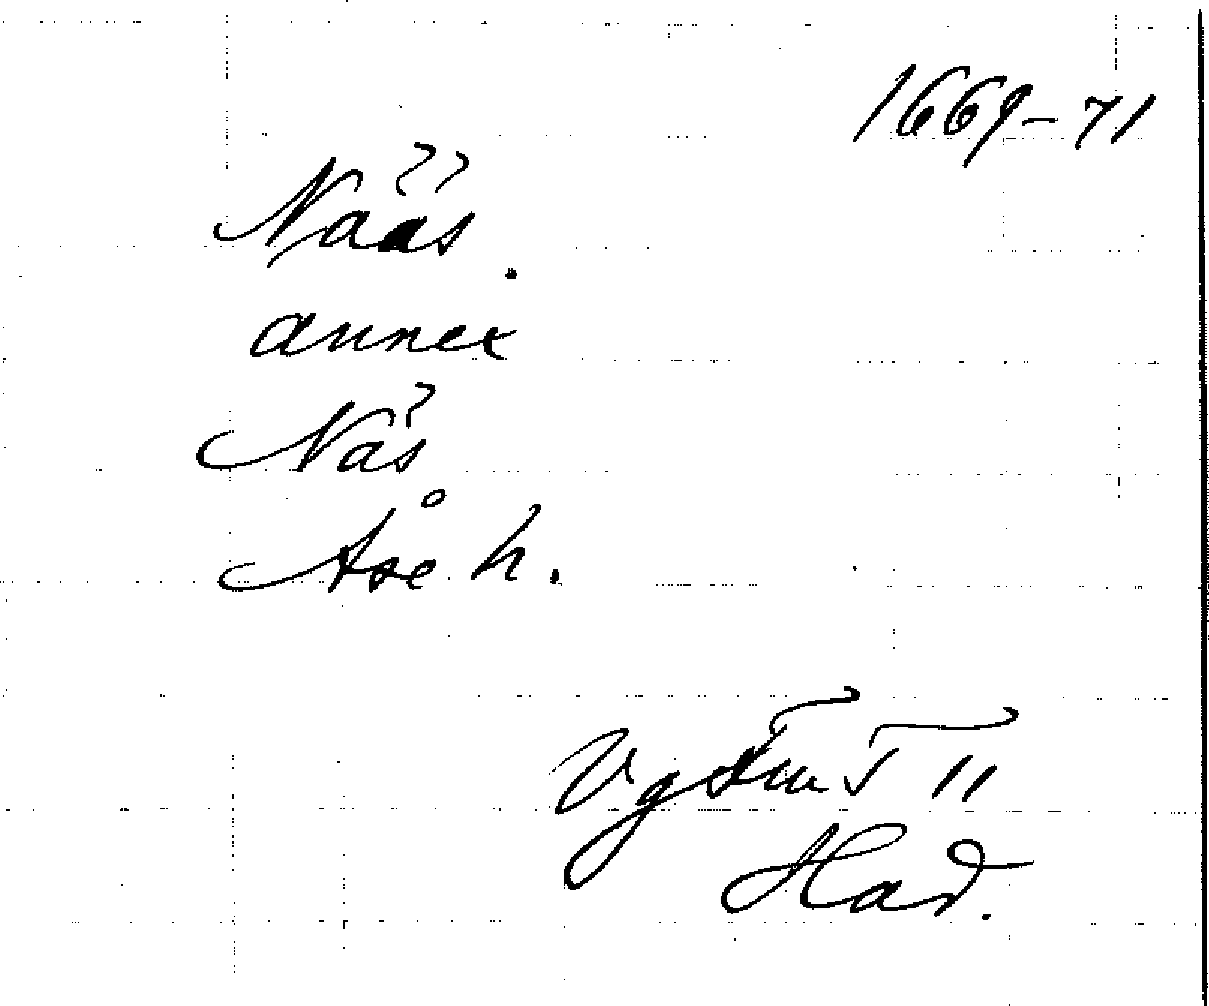 1669-71
Nääs.
annex
Näs
Åse h.
Vg FmT 11
Had.